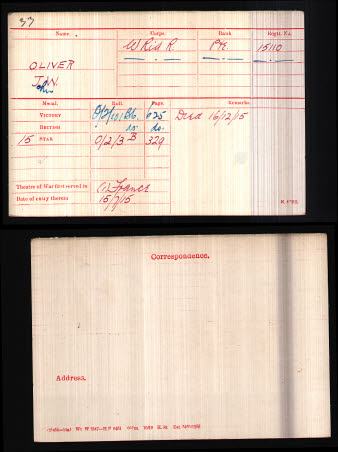 33
Name. Corps. Rank. Regtl. No.
W Rid R. Pte. 15110
OLIVER
John
Medal. Roll. Page. Remarks.
VICTORY 625 Died 16/12/15
BRITISH do. do.
15 STAR 0/2/3 B 329
Theatre of War first served in (1) France
Date of entry therein 15/7/15
Correspondence.
Address.